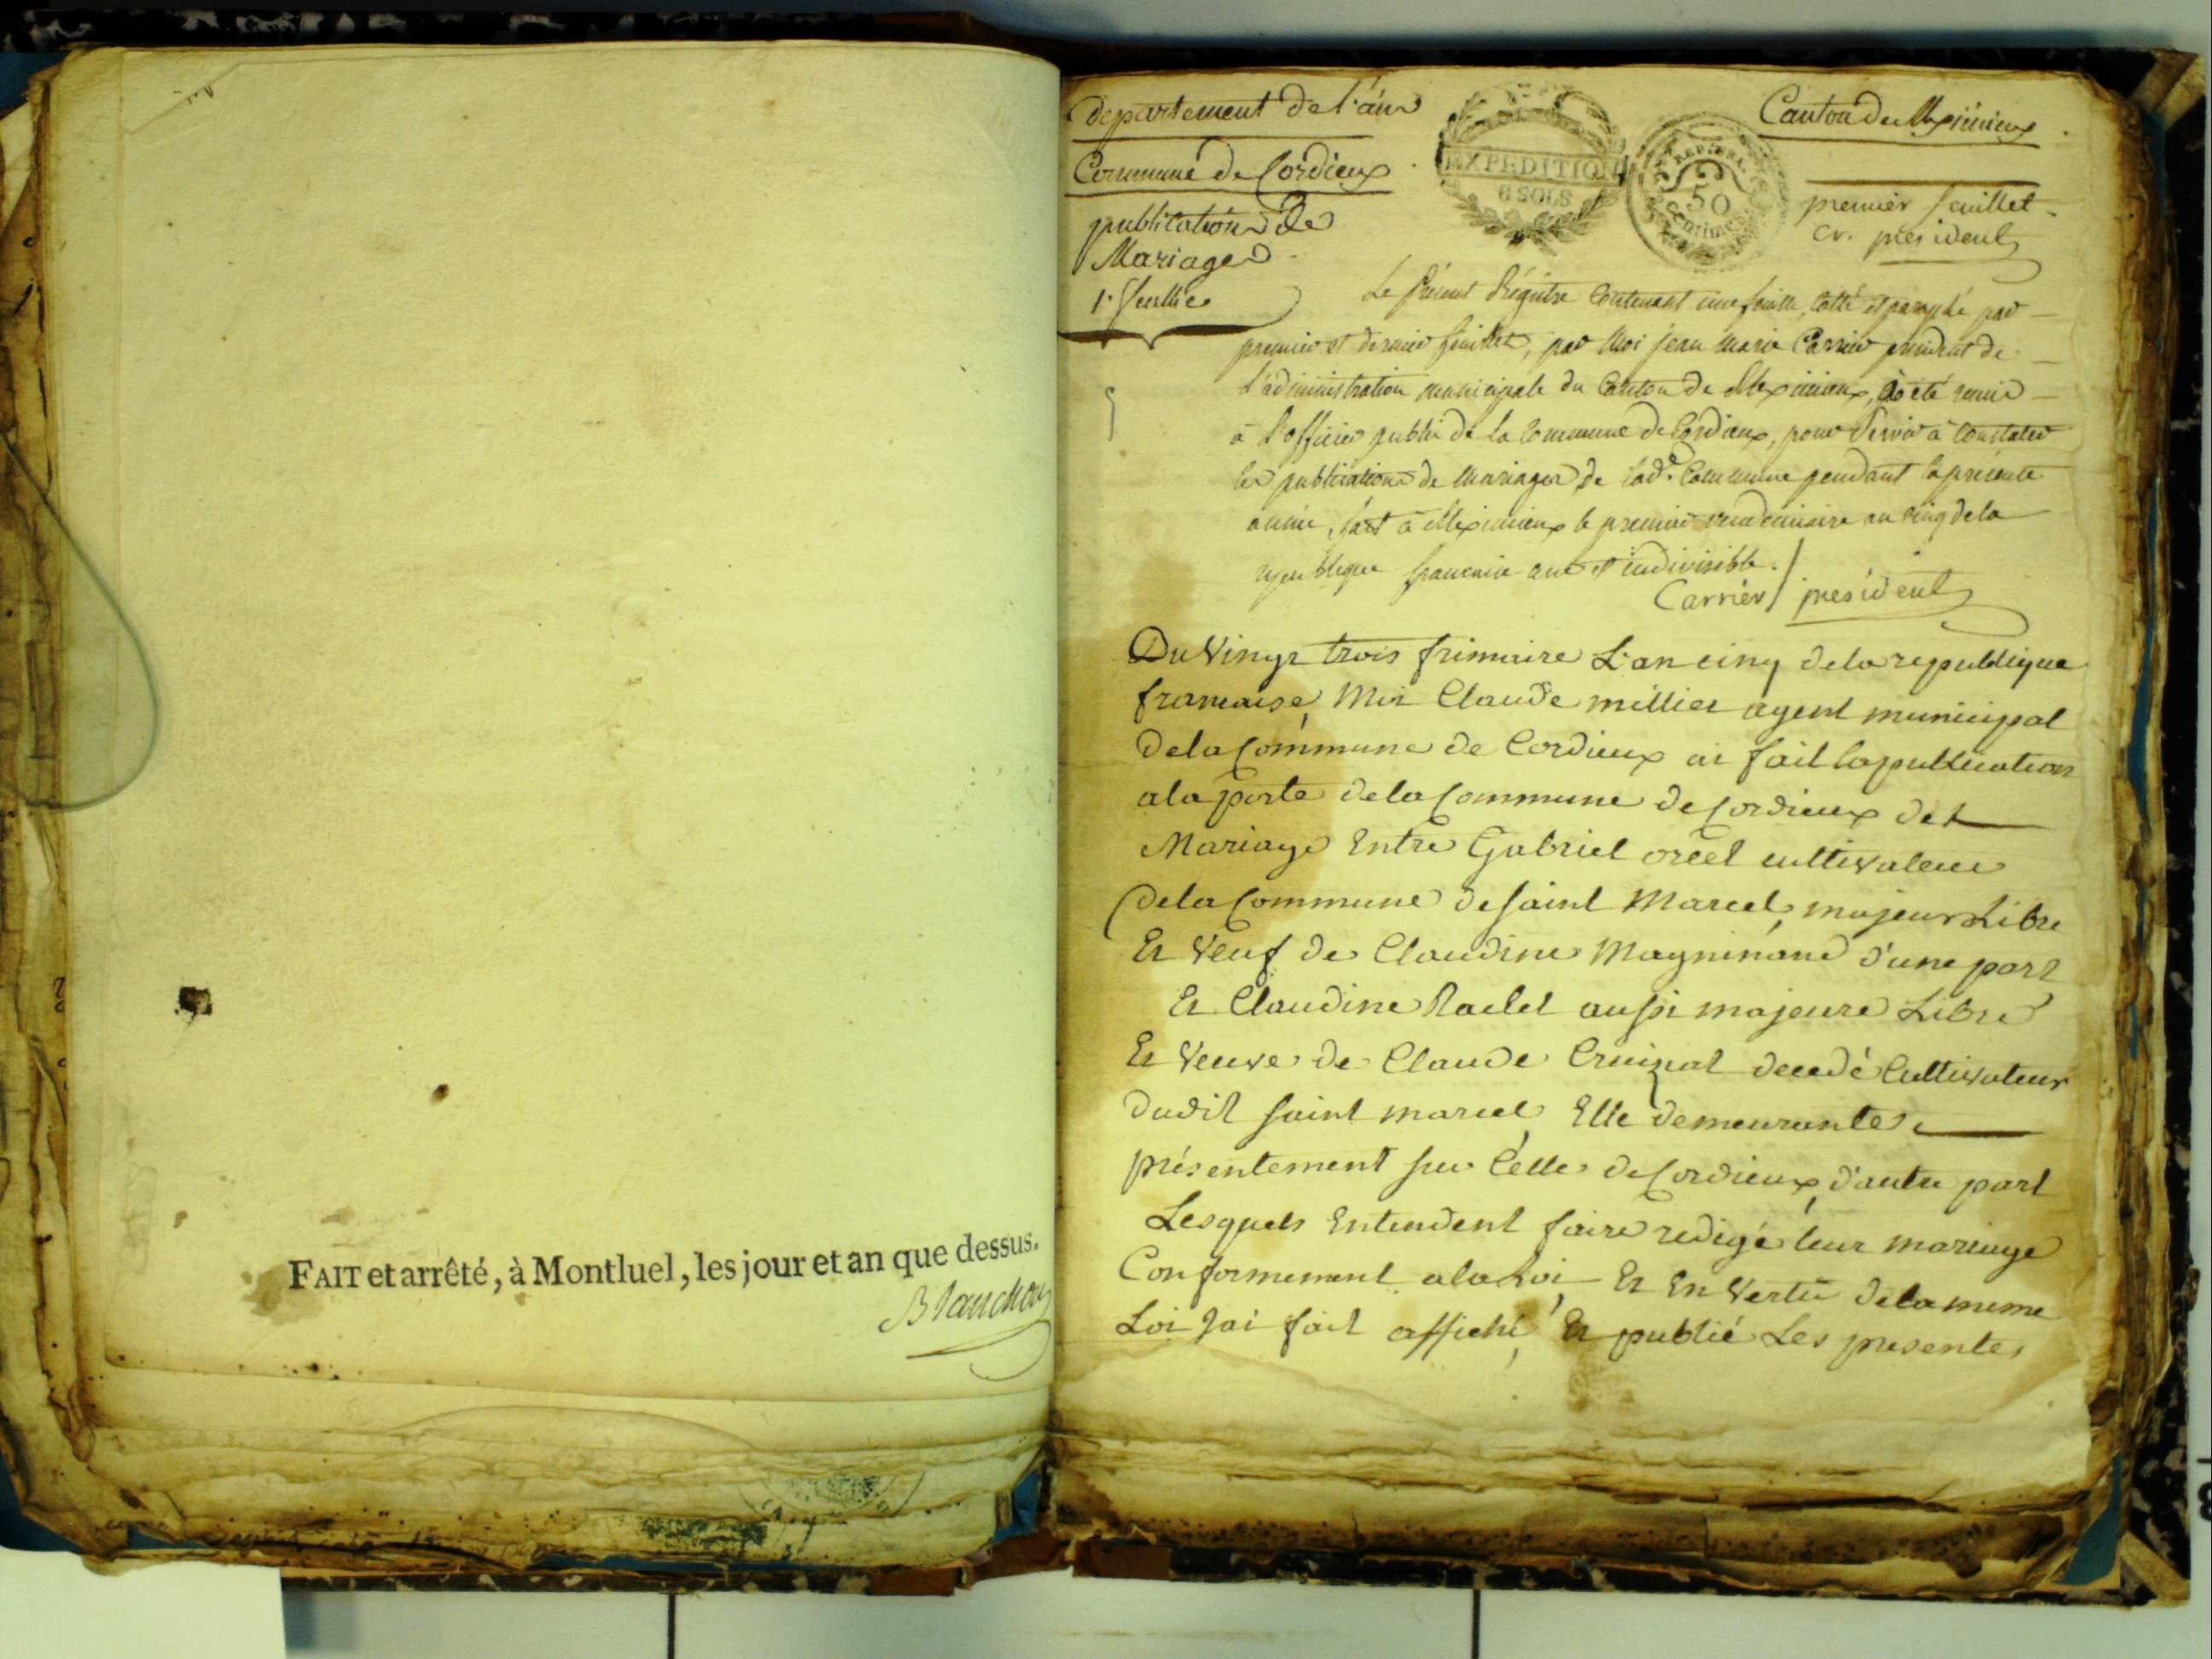 FAIT et arrêté, à Montluel, les jour et an que dessus.
Blanchon
département de l'ain
Canton de Meximieux
Commune de Cordieux
publication de
Mariages
1. feuille
EXPEDITION
6 SOLS
REP. FRA.
50
Centimes
premier feuillet
cr. président
Le présent Régistre Contenant une feuille, Cotté et paraphé par
premier et dernier feuillet, par Moi jean marie Carrier président de
L'administration municipale du Canton de Meximieux, a été remis
à L'officier public de la Commune de Cordieux, pour Servir à Constater
les publications de Mariages de lad.e Commune pendant la présente
année, fait à Meximieux le premier vendemiaire an cinq de la
république francaise une et indivisible.
Carrier président
Du Vingt trois frimaire L'an cinq de la republique
francaise, Moi Claude millier agent municipal
de la Commune de Cordieux ai fait la publication
a la porte de la Commune de Cordieux de
Mariage Entre Gabriel orcel cultivateur
de la Commune de saint Marcel, majeur Libre
Et Veuf de Claudine Magninand d'une part
Et Claudine Raclet aussi majeure Libre
Et Veuve de Claude Cruizat decedé Cultivateur
dudit saint marcel, Elle demeurante
présentement sur Celle de Cordieux, d'autre part
Lesquels Entendent faire redigé leur mariage
Conformement a la Loi, Et En Vertu de la meme
Loi J'ai fait affiché, Et publié Les presentes